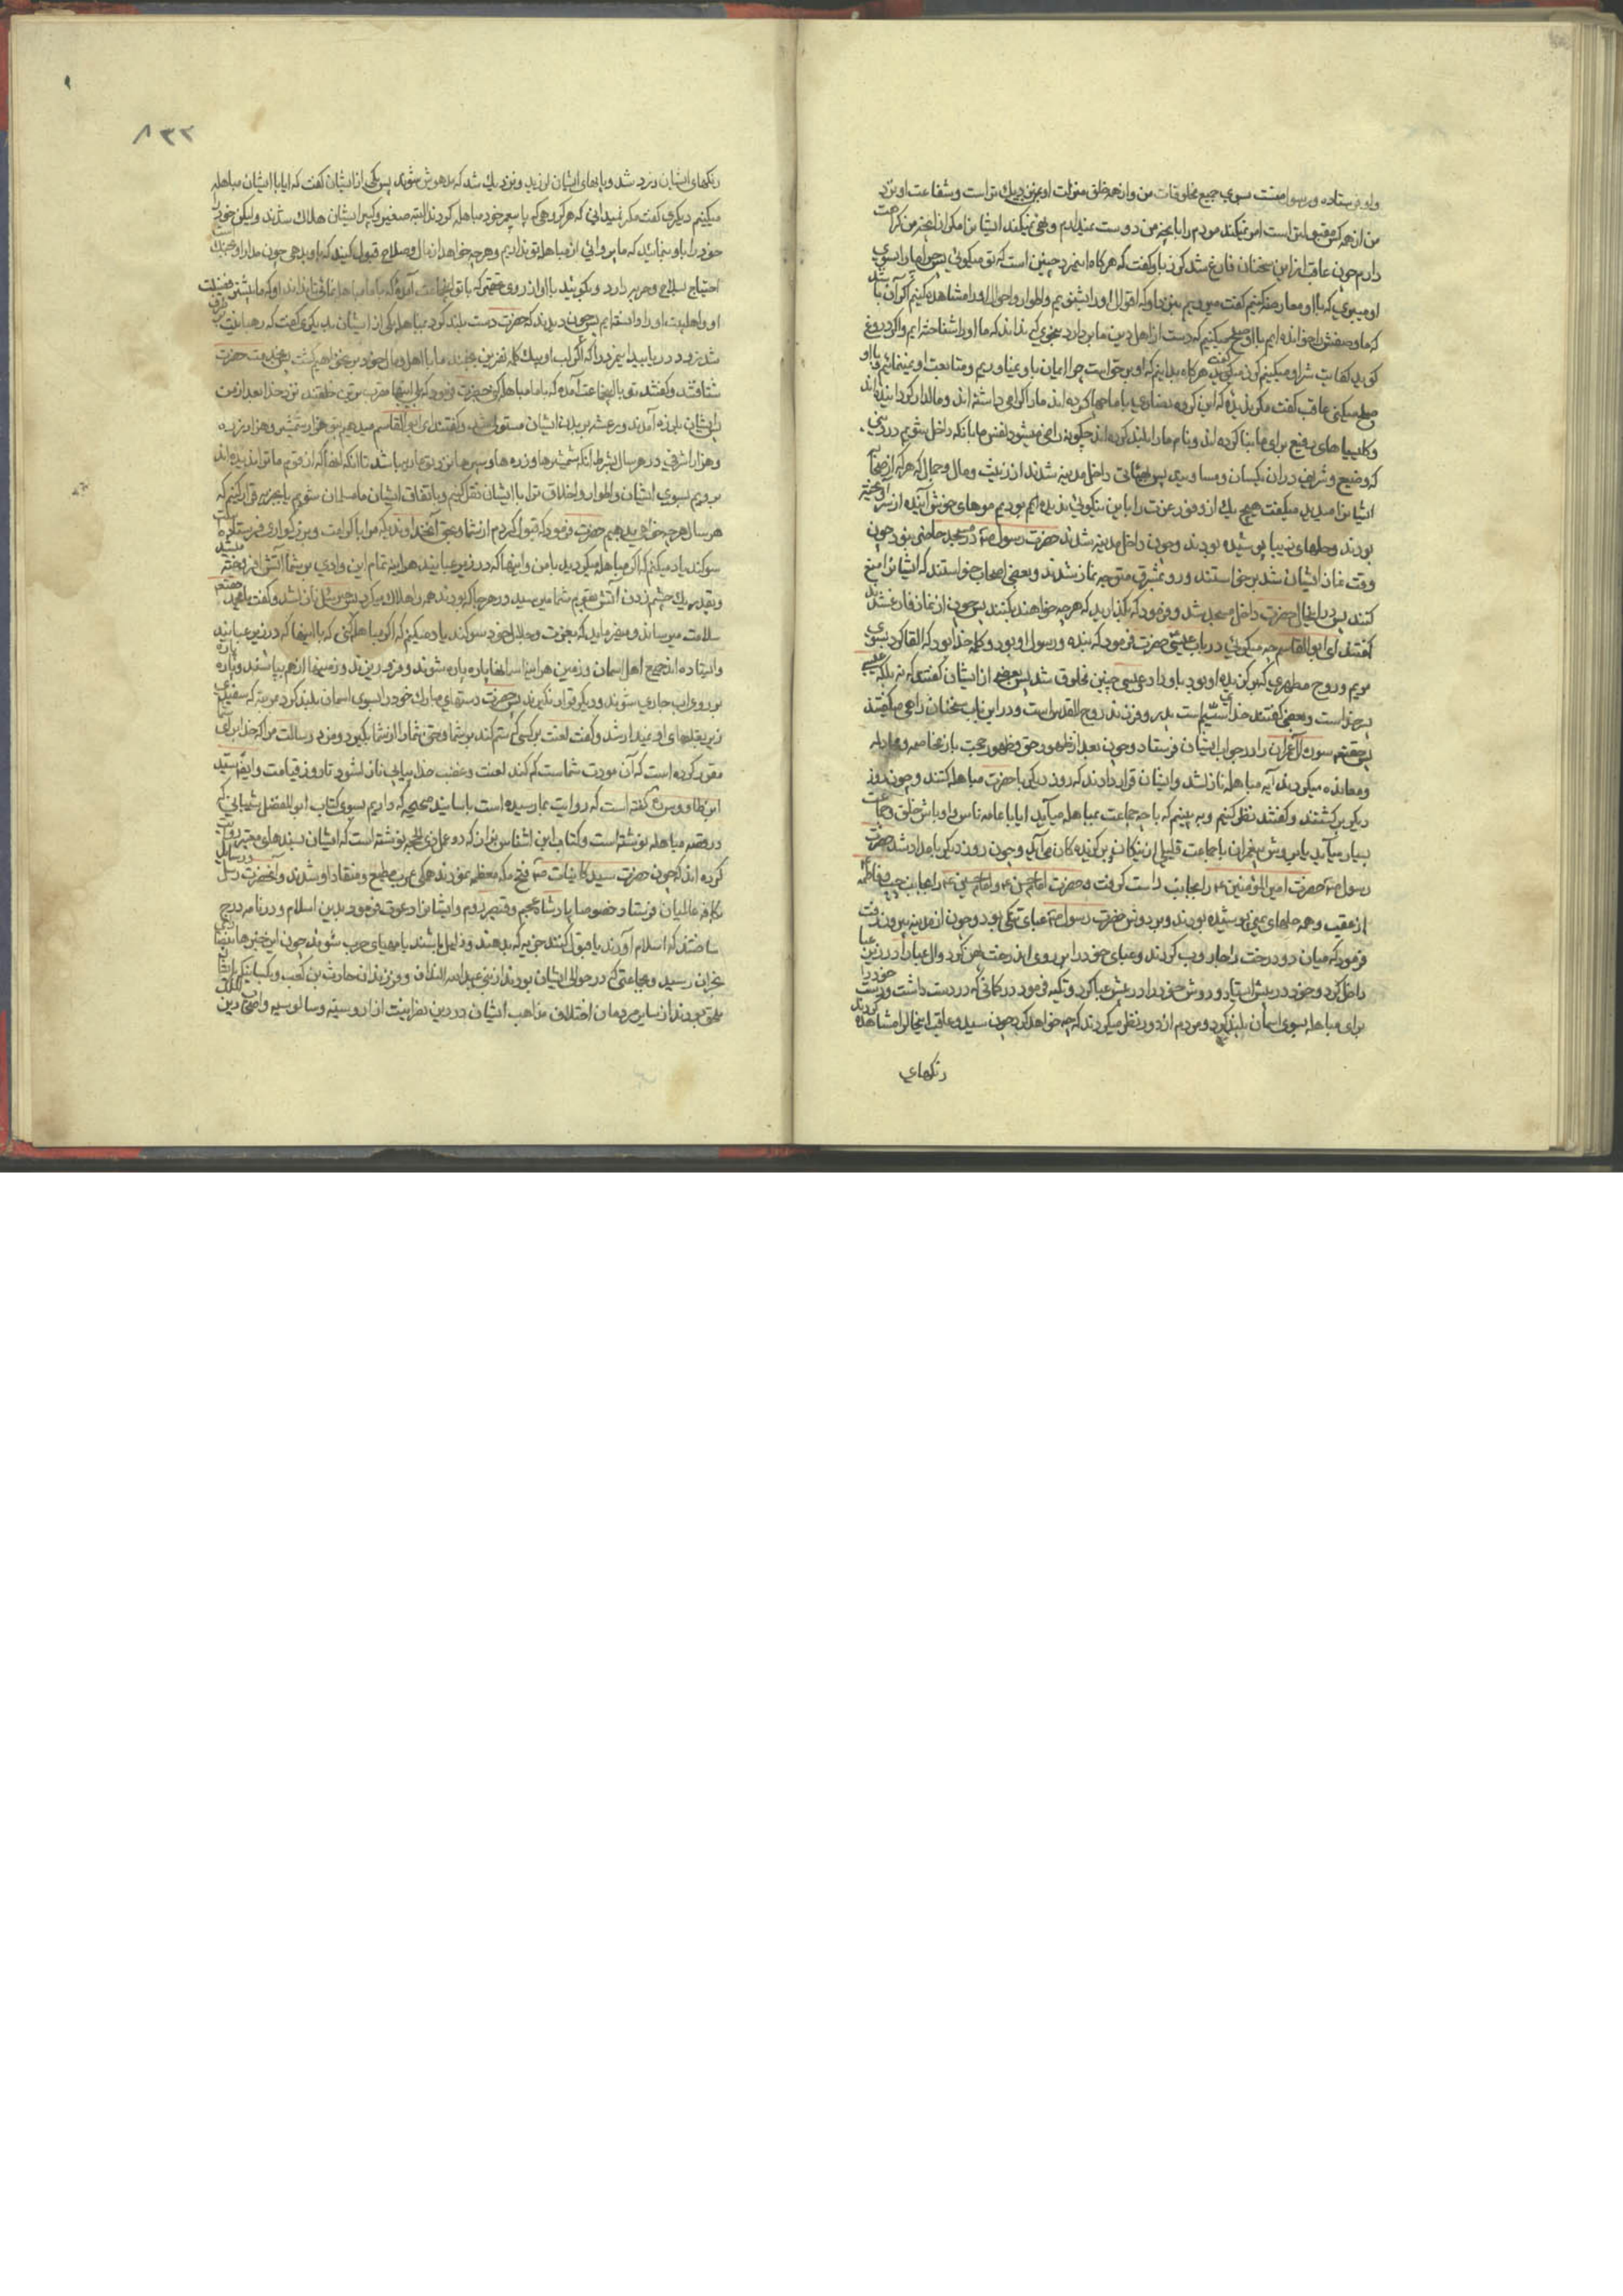 واو فرستاده و رسول منست بسوي جميع مخلوقات من و از همه خلق منزلت او بمن نزديك تر است و شفاعت او نزد
من از همه كس مقبول تر است امر نميكند مردم را الا بانچه من دوست ميدارم و نهى نميكند ايشانرا مكر از انچه من كراهت
دارم چون عاقب از اين سخنان فارغ شد كرز باو كفت كه هركاه اين مرد چنين است كه تو ميكوئي پس چرا مارا بسوي
او ميبري كه با او معارضه كنيم كفت ميرويم بنزد او كه اقوال او را بشنويم و اطوار و احوال او را مشاهده كنيم اكر آن باشد
كه ما وصفش را خوانده ايم با او صلح ميكنيم كه دست از اهل دين ما بردارد بنحوي كه نداند كه ما او را شناخته ايم و اكر دروغ
كويد كفايت شر او ميكنيم كرز ميكويد هركاه بدانيم كه او بر حق است چرا ايمان باو نمياوريم و متابعت او نمينمائيم و با او
صلح ميكني عاقب كفت مكر نديده كه اين كروه نصاري با ما چها كرده اند مارا كرامي داشته اند و مالدار كردانيده اند
و كليسياهاي رفيع براي ما بنا كرده اند و نام مارا بلند كرده اند چكونه راضي ميشود نفس ما بانكه داخل شويم در ديني
كه وضيع و شريف در ان يكسان و مساويند پس بهيئتي داخل مدينه شدند از زينت و مال و جمال كه هر كه از صحابه
ايشانرا ميديد ميكفت هيچ يك از وفود عرب را باين نيكوئي نديده ايم بوديم موهاي خوش آينده از سر آويخته
بودند و حلهاي زيبا پوشيده بودند و چون داخل مدينه شدند حضرت رسول ص در مسجد حاضر نبود چون
وقت نماز ايشان شد برخواستند و رو بمشرق متوجه نماز شدند و بعضي اصحاب خواستند كه ايشانرا منع
كنند پس در اينحال حضرت داخل مسجد شد و فرمود كه بگذاريد كه هرچه خواهند بكنند پس چون از نماز فارغ شدند
كفتند اي ابو القاسم چه ميكوئي در باب عيسي حضرت فرمود كه بنده و رسول او بود و كلمه خدا بود كه القا كرد بسوي
مريم و روح مطهري كه بركزيده او بود باو داد عيسي چنين مخلوق شد پس بعضي از ايشان كفتند كه نه بلكه عيسي
پسر خدا است و بعضي كفتند خدا سيّم است پدر و فرزند و روح القدس است و در اين باب سخنان واهي ميكفتند
پس حقتعالي سوره آل عمران را در جواب ايشان فرستاد و چون بعد از ظهور حق و ظهور حجت باز مخاصمه و مجادله
و معانده ميكردند آيه مباهله نازل شد و ايشان قرار دادند كه روز ديكر با حضرت مباهله كنند و چون روز
ديكر بركشتند و كفتند نظر كنيم و به بينيم كه با چه جماعت بمباهله ميآيد ايا با عامه ناس و اوباش خلق و جماعت
بسيار ميآيد يا بروش پيغمبران با جماعت قليلي از نيكان بركزيدكان مي آيد و چون روز ديكر بامداد شد حضرت
رسول ص حضرت امير المؤمنين ع را بجانب راست كرفت و حضرت امام حسن ع و امام حسين ع را بجانب چپ و فاطمه ع
از عقب و همه حلهاي يمني پوشيده بودند و بر دوش حضرت رسول ص عباي تنكي بود و چون از مدينه بيرون رفت
فرمود كه ميان دو درخت را جاروب كردند و عباي خود را بر روي اين درخت پهن كرد و آل عبا را در زير عبا
داخل كرد و خود در پيش ايستاد و دوش خود را در پيش عبا كرد و تكيه فرمود در كماني كه در دست داشت و دست خود را
براي مباهله بسوي اسمان بلند كرد و مردم از دور نظر ميكردند كه چه خواهد كرد چون سيد و عاقب اينحال را مشاهده كردند
رنكهاي
٨٣٢
رنكهاي ايشان زرد شد و پاهاي ايشان لرزيد و نزديك شد كه مدهوش شوند پس يكي از ايشان كفت كه ايا با ايشان مباهله
ميكنيم ديكري كفت مكر نميداني كه هر كروهي كه با پيغمبر خود مباهله كردند البته صغير و كبير ايشان هلاك شدند وليكن خود را
خود را باو بنمائيد كه ما پروائي از مباهله تو نداريم و هرچه خواهد از مال و سلاح قبول كنيد كه باو بدهي چون مدار او بجنك است
احتياج بسلاح و حربه دارد و بكوئيد با او از روي تحقير كه با تو اينجماعت آمده كه با ما مباهله نمائي تا نداند او كه ما پيشتر فضيلت
او و اهلبيت او را دانسته ايم پس چون ديدند كه حضرت دست بلند كرد بمباهله يكي از ايشان بديكري كفت كه رهبانيت
شد زود دريابيد اين مرد را كه اكر لب او بيك كلمه نفرين بجنبد ما باهل و مال خود برنخواهيم كشت پس بخدمت حضرت
شتافتند و كفتند تو با اينجماعت آمده كه با ما مباهله كني حضرت فرمود كه بلي اينها مقرب ترين خلقند نزد خدا بعد از من
پس ايشان بلرزه آمدند و رعشه بر بدن ايشان مستولي شد و كفتند اي ابو القاسم ميدهيم بتو هزار شمشير و هزار زره
و هزار اشرفي در هر سال بشرط آنكه شمشيرها و زره ها و سپرها نزد تو عاريه باشد تا انكه
برويم بسوي ايشان و اطوار و اخلاق ترا با ايشان نقل كنيم و باتفاق ايشان يا مسلمان شويم يا بجزيه قرار كنيم كه
هر سال هرچه خواهي بدهيم حضرت فرمود كه قبول كردم از شما و بحق آنخداوندي كه مرا با كرامت و بزركواري فرستاده است
سوكند ياد ميكنم كه اكر مباهله ميكرديد با من و اينها كه در زير عبايند هراينه تمام اين وادي بر شما آتش افروخته ميشد
و بقدر يك چشم زدن آتش بقوم شما ميرسيد و در هرجا كه بودند همه را هلاك ميكرد پس جبرئيل نازل شد و كفت يا محمد حقتعالي
سلامت ميرساند و ميفرمايد كه بعزت و جلال خود سوكند ياد ميكنم كه اكر مباهله كني كه با اينها كه در زير عبايند
و ايستاده اند جميع اهل اسمان و زمين هر اينه اسمانها پاره پاره شوند و فرو ريزند و زمينها از هم بپاشند و پاره پاره
بر روي اب جاري شوند و ديكر قرار نكيرند پس حضرت دستهاي مبارك خود را بسوي اسمان بلند كرد بمرتبه كه سفيدي
زير بغلهاي او نمودار شد و كفت لعنت بر كسي كه ستم كند بر شما و حق شما را از شما بكيرد و مزد رسالت مرا كه خدا براي شما
مقرر كرده است كه آن مودت شماست كم كند لعنت و غضب خدا پياپي نازل شود تا روز قيامت و ايضا سيد
ابن طاووس ره كفته است كه روايت بما رسيده است باسانيد صحيحه كه داريم بسوي كتاب ابو المفضل شيباني كه
در قصه مباهله نوشته است و كتاب ابن اشناس بزاز كه در عمل ذي الحجه نوشته است كه ايشان بسندهاي معتبر روايت
كرده اند كه چون حضرت سيد كاينات ص فتح مكه معظمه نمودند همكي عرب مطيع و منقاد او شدند و آنحضرت رسل و رسايل
بكافه عالميان فرستاد خصوصا پادشاه عجم و قيصر روم و ايشانرا دعوت فرمود بدين اسلام و در نامه درج
ساختند كه اسلام آورند يا قبول كنند جزيه كه بدهند و ذليل باشند يا مهياي حرب شوند چون اين خبرها بنصاراي
نجران رسيد و بجماعتي كه در حوالي ايشان بودند از بني عبد المدان و فرزندان حارث بن كعب و بكسانيكه بايشان
ملحق بودند از ساير مردمان اختلاف مذاهب ايشان در دين نصرانيت از اروسيه و سالوسيه و اصحاب دين الملك